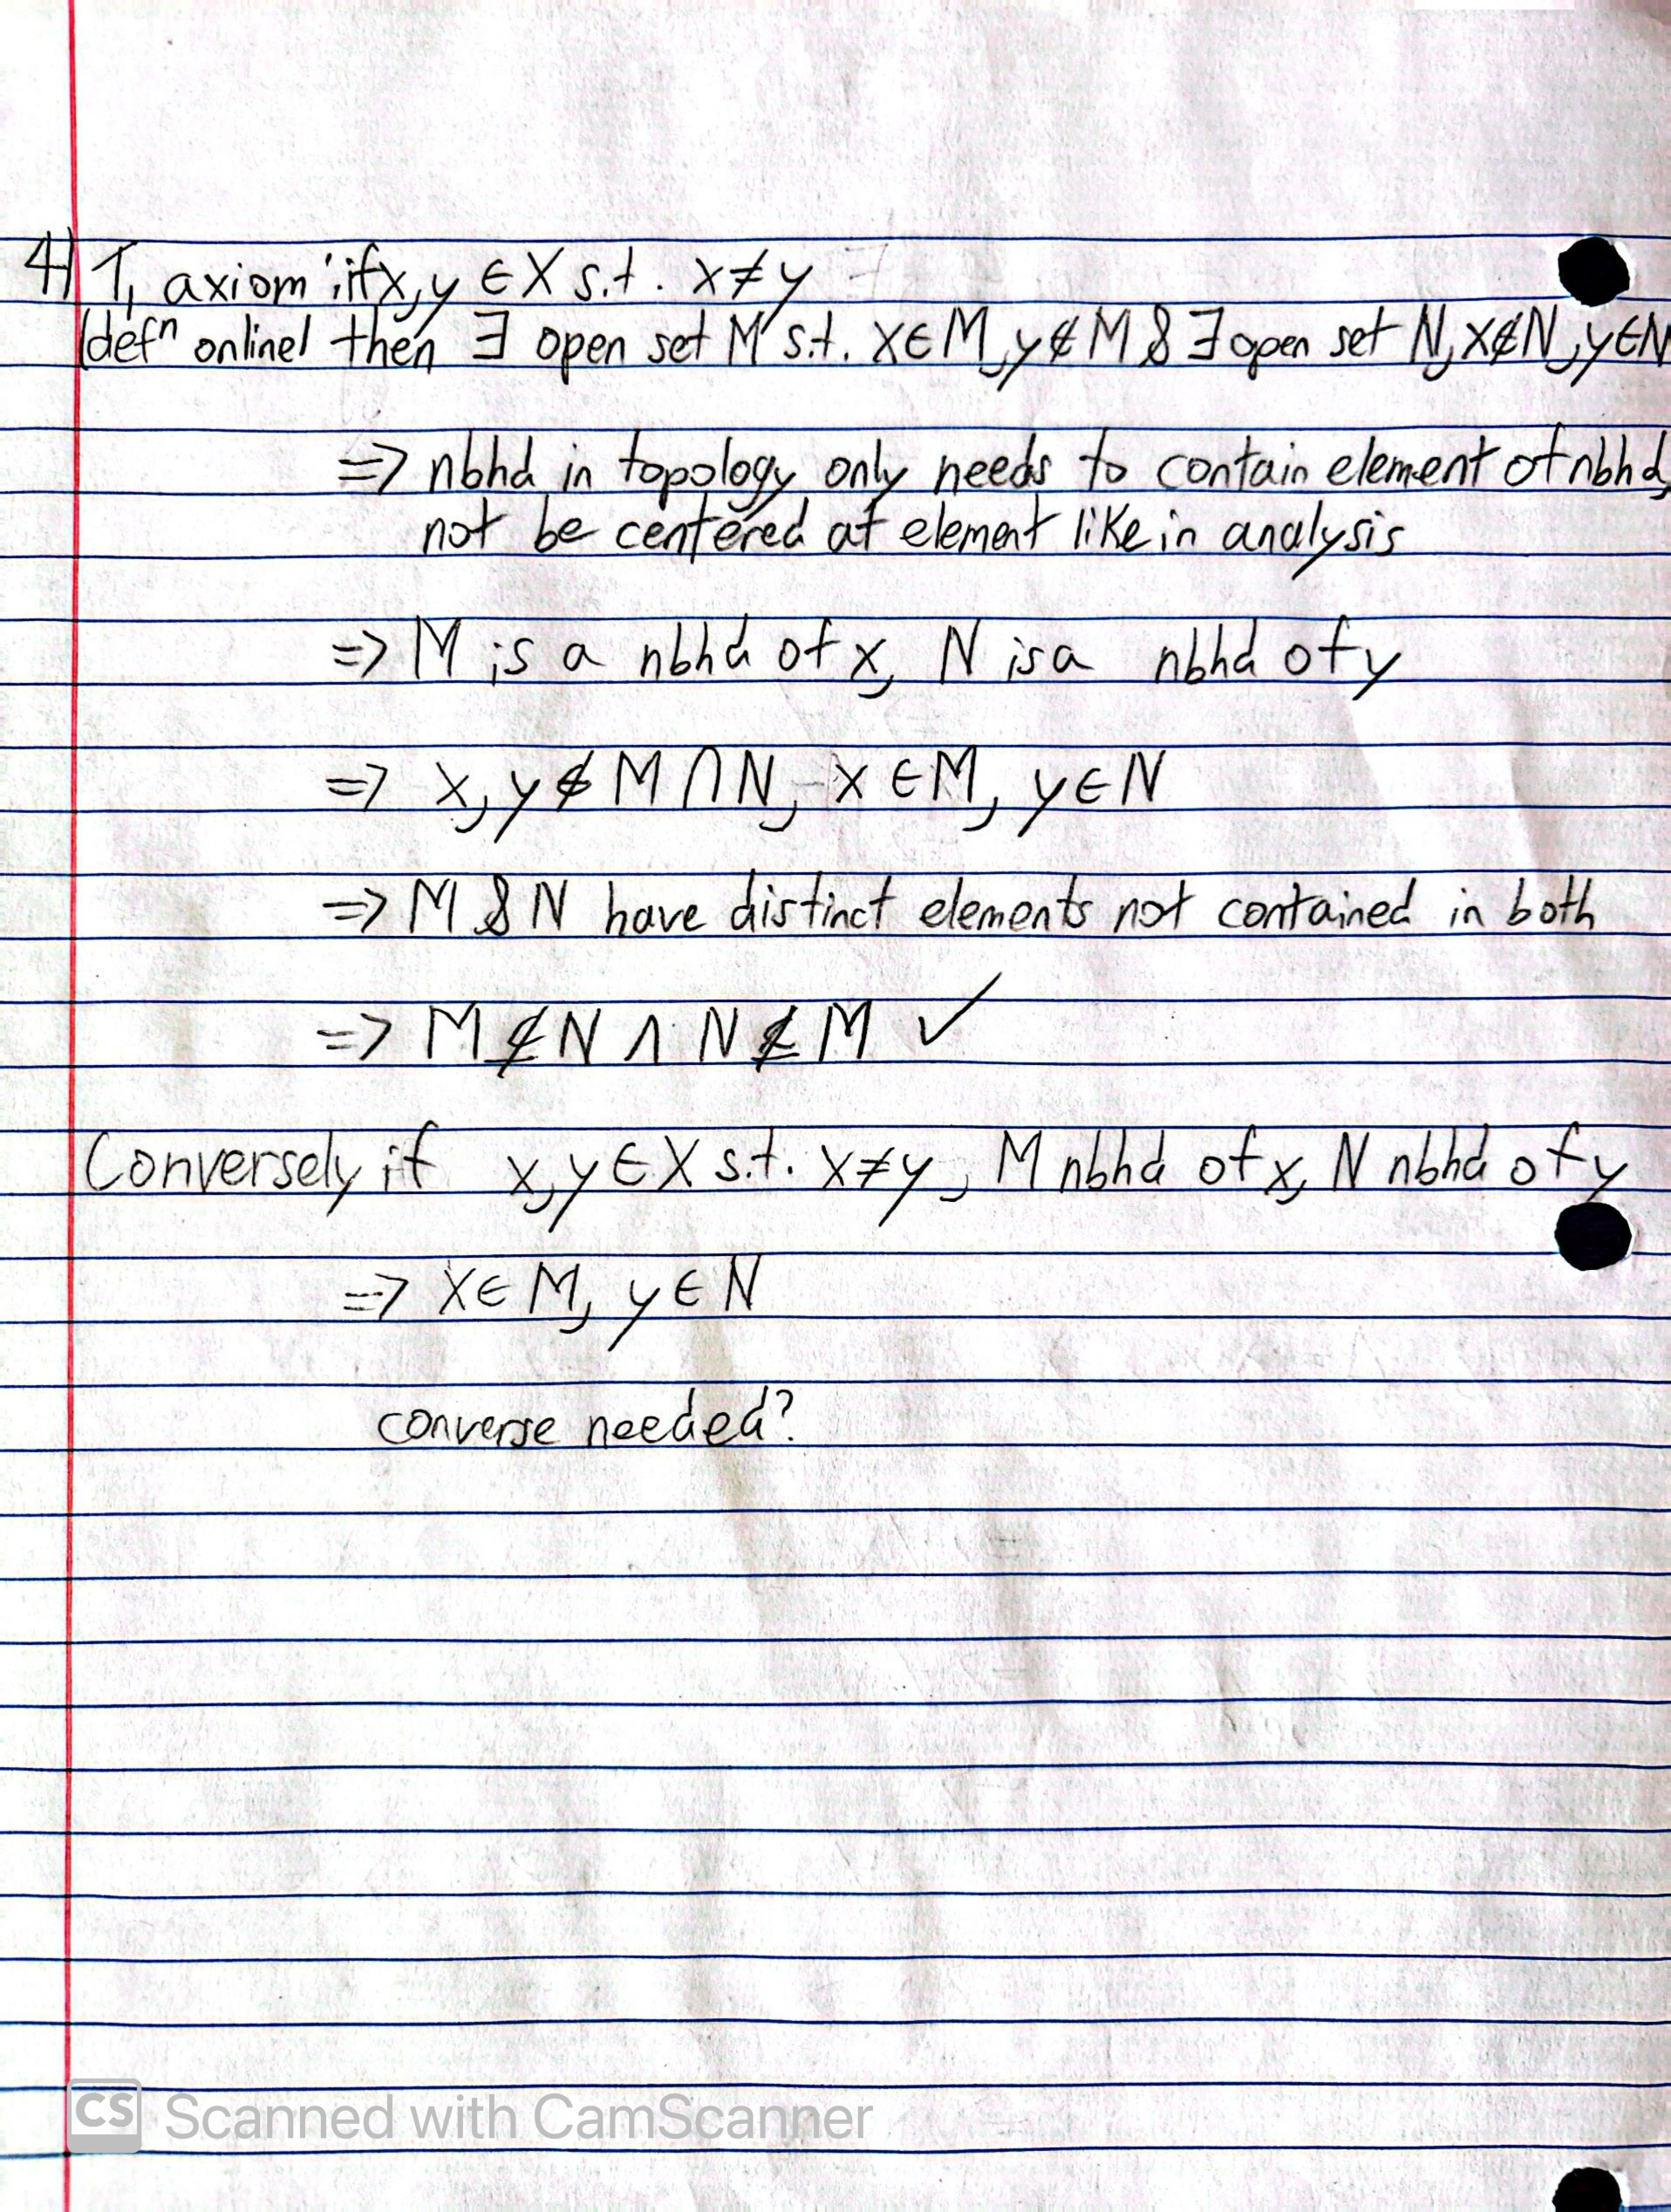 4) T₁ axiom: if x,y ∈ X s.t. x≠y
(defⁿ online) then ∃ open set M s.t. x∈M, y∉M & ∃ open set N, x∉N, y∈N
=> nbhd in topology only needs to contain element of nbhd,
not be centered at element like in analysis
=> M is a nbhd of x, N is a nbhd of y
=> x, y ∉ M ∩ N, x ∈ M, y ∈ N
=> M & N have distinct elements not contained in both
=> M ⊈ N ∧ N ⊈ M ✓
Conversely if x,y ∈ X s.t. x≠y, M nbhd of x, N nbhd of y
=> x ∈ M, y ∈ N
converse needed?
CS Scanned with CamScanner